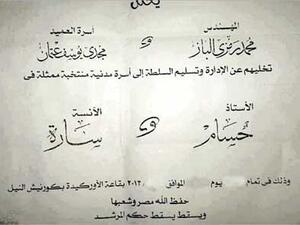 يعلن
المهندس
أسرة العميد
محمد رمزى الباز
و
مجدى يوسف عثمان
تخليهم عن الإدارة وتسليم السلطة إلى أسرة مدنية منتخبة ممثلة فى
الأستاذ
الآنسة
حسام
و
سارة
وذلك فى تمام يوم الموافق ٢٠١٢ بقاعة الأوركيدة بكورنيش النيل
حفظ الله مصر وشعبها
ويسقط يسقط حكم المرشد